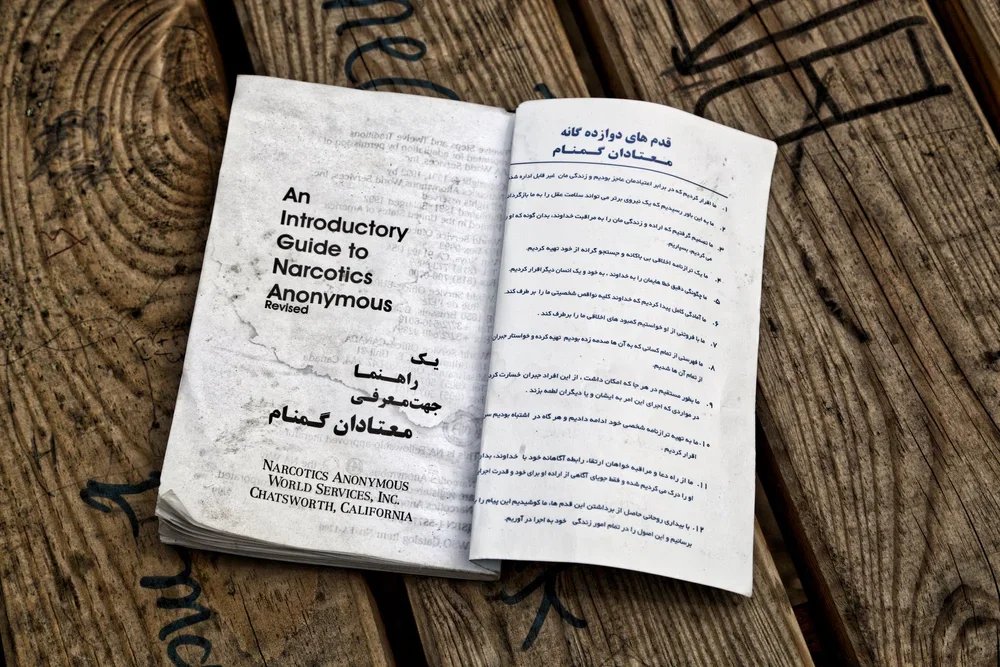 An
Introductory
Guide to
Narcotics
Anonymous
Revised
یک
راهنما
جهت معرفی
معتادان گمنام
NARCOTICS ANONYMOUS
WORLD SERVICES, INC.
CHATSWORTH, CALIFORNIA
قدم های دوازده گانه
معتادان گمنام
۱. ما اقرار کردیم که در برابر اعتیادمان عاجز بودیم و زندگی مان غیر قابل اداره شده
۲. ما به این باور رسیدیم که یک نیروی برتر می تواند سلامت عقل را به ما بازگرداند
۳. ما تصمیم گرفتیم که اراده و زندگی مان را به مراقبت خداوند، بدان گونه که او را
می کردیم، بسپاریم.
۴. ما یک ترازنامه اخلاقی بی باکانه و جستجو گرانه از خود تهیه کردیم.
۵. ما چگونگی دقیق خطا هایمان را به خداوند، به خود و یک انسان دیگر اقرار کردیم.
۶. ما آمادگی کامل پیدا کردیم که خداوند کلیه نواقص شخصیتی ما را بر طرف کند.
۷. ما با فروتنی از او خواستیم کمبود های اخلاقی ما را برطرف کند.
۸. ما فهرستی از تمام کسانی که به آن ها صدمه زده بودیم تهیه کرده و خواستار جبران
از تمام آن ها شدیم.
۹. ما بطور مستقیم در هر جا که امکان داشت، از این افراد جبران خسارت کرد
در مواردی که اجرای این امر به ایشان و یا دیگران لطمه بزند.
۱۰. ما به تهیه ترازنامه شخصی خود ادامه دادیم و هر گاه در اشتباه بودیم سر
اقرار کردیم.
۱۱. ما از راه دعا و مراقبه خواهان ارتقاء رابطه آگاهانه خود با خداوند،
او را درک می کردیم شده و فقط جویای آگاهی از اراده او برای خود و قدرت اجرا
۱۲. با بیداری روحانی حاصل از برداشتن این قدم ها، ما کوشیدیم این پیام را
برسانیم و این اصول را در تمام امور زندگی خود به اجرا در آوریم.